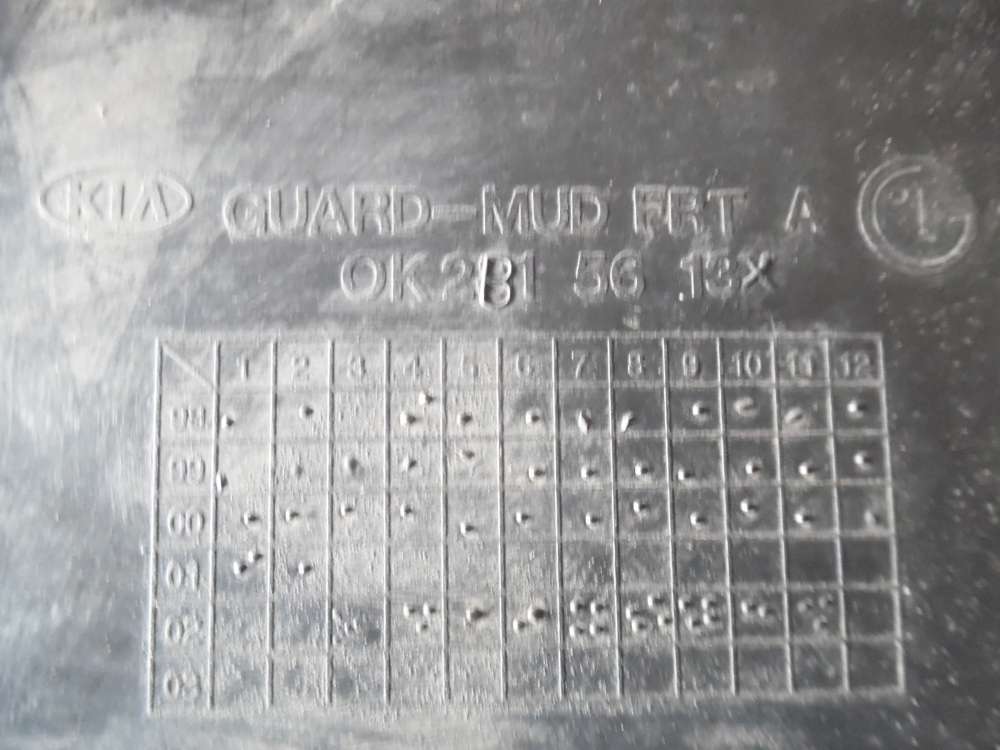 KIA GUARD-MUD FRT A
OK2B1 56 13X
1 2 3 4 5 6 7 8 9 10 11 12
98
99
00
01
02
03